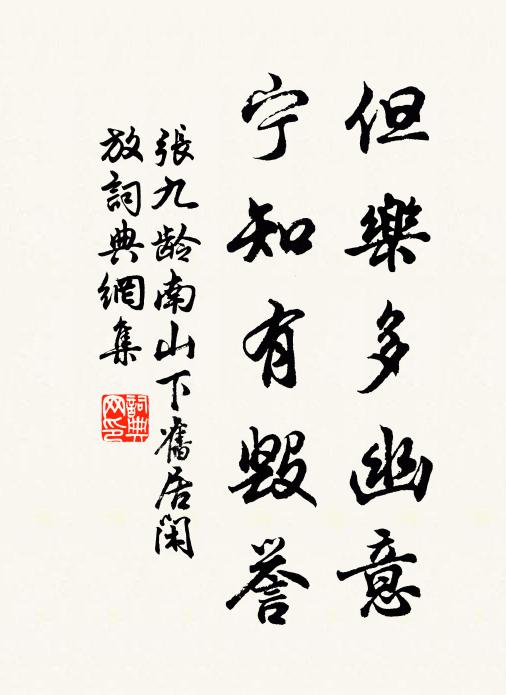 但樂多幽意
宁知有毀誉
張九龄南山下舊居閑
放詞典網集
詞典
网印